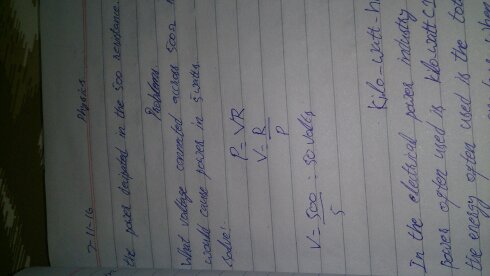 7-11-16 Physics
the power dissipated in the 500 resistance.
Problem
What voltage connected across 500Ω
would cause power in 5 watts.
Solve:
P = VR
V = R
P
V = 500 = 50 volts
5
Kilo-watt-h
In the electrical power industry
power often used is kilowatt
the energy often used is the tot